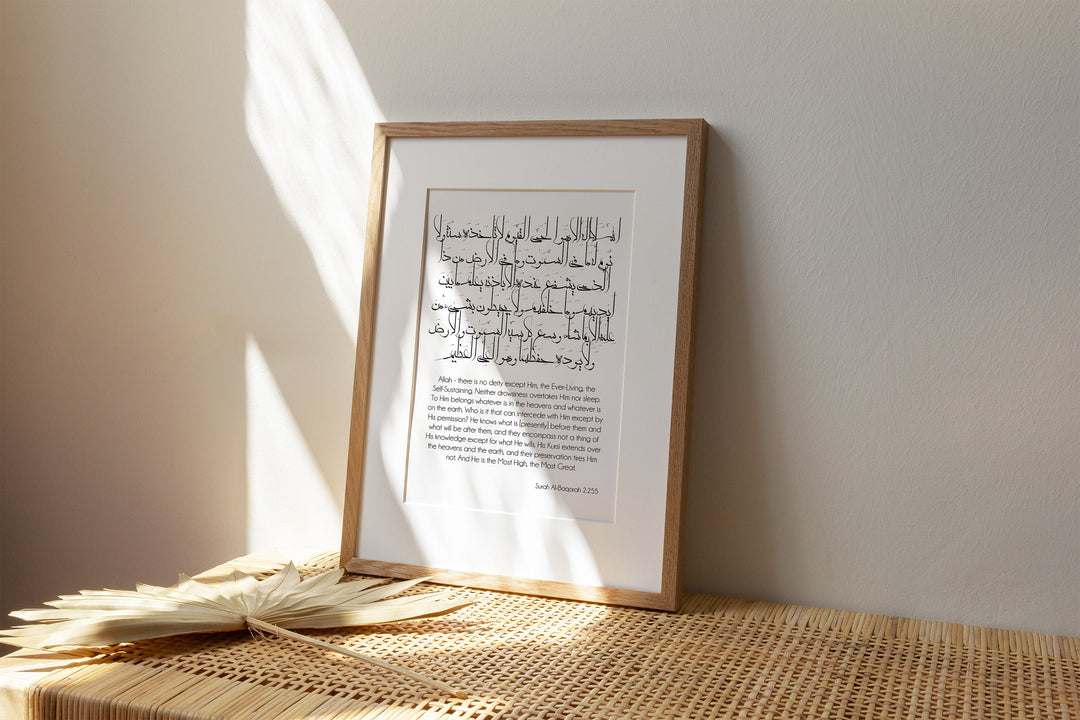 الله لا اله الا هو الحي القيوم لا تأخذه سنة ولا
نوم له ما في السموت وما في الارض من ذا
الذي يشفع عنده الا باذنه يعلم ما بين
ايديهم وما خلفهم ولا يحيطون بشيء من
علمه الا بما شاء وسع كرسيه السموت والارض
ولا يوده حفظهما وهو العلي العظيم
Allah - there is no deity except Him, the Ever-Living, the
Self-Sustaining. Neither drowsiness overtakes Him nor sleep.
To Him belongs whatever is in the heavens and whatever is
on the earth. Who is it that can intercede with Him except by
His permission? He knows what is [presently] before them and
what will be after them, and they encompass not a thing of
His knowledge except for what He wills. His Kursi extends over
the heavens and the earth, and their preservation tires Him
not. And He is the Most High, the Most Great.
Surah Al-Baqarah 2:255